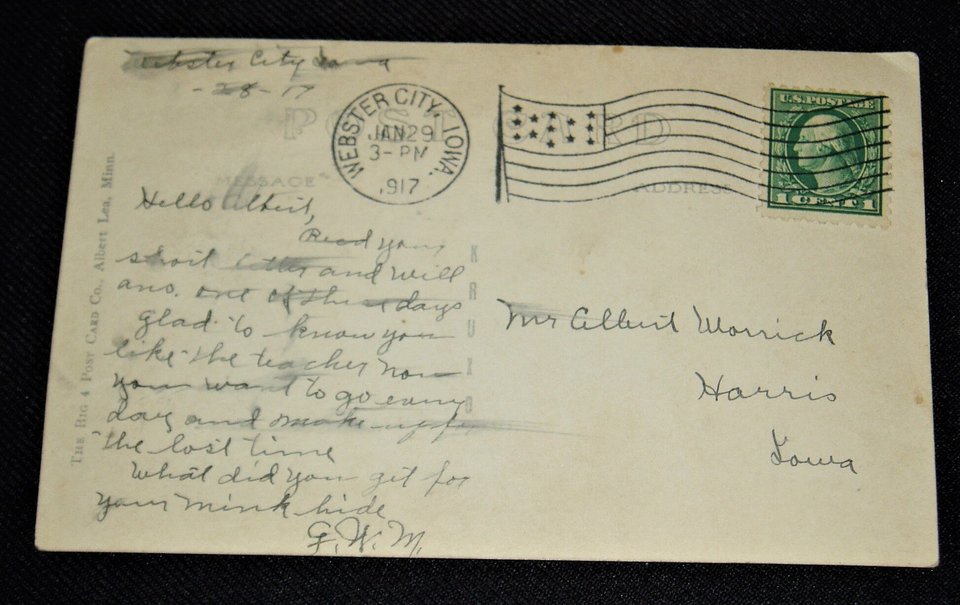 Webster City Iowa
- 28 - 17
POST CARD
WEBSTER CITY, IOWA.
JAN 29
3 - PM
1917
U.S. POSTAGE
1 CENT 1
MESSAGE
ADDRESS
THE BIG 4 POST CARD CO., ALBERT LEA, MINN.
KRUXO
Hello Albert,
Recd your
short letter and will
ans. one of these days
glad to know you
like the teacher now
you want to go every
day and make up for
the lost time
What did you get for
your mink hide
G. W. M.
Mr Albert Worrick
Harris
Iowa